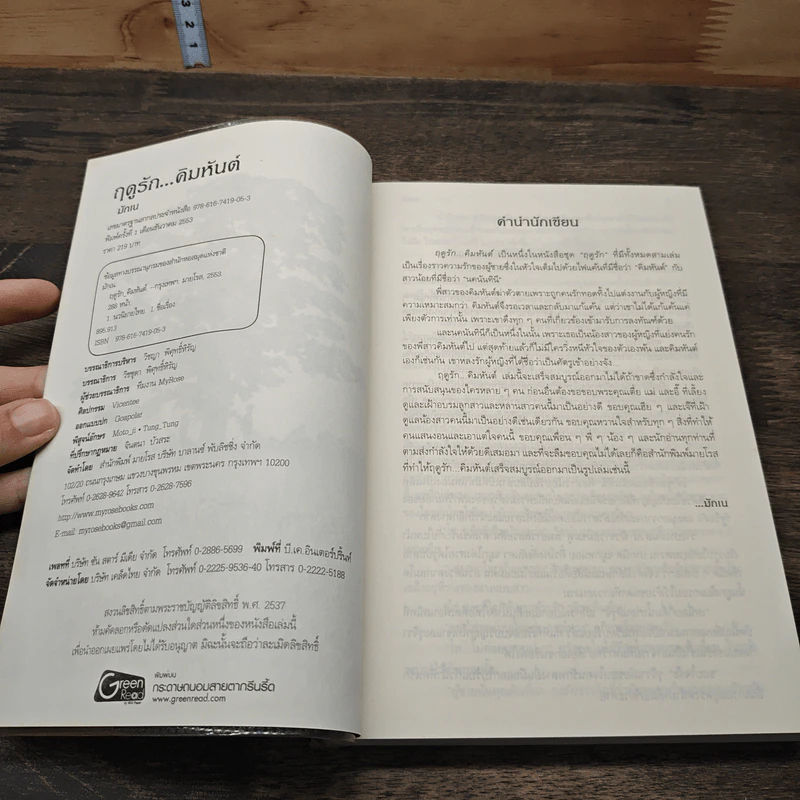 3
2
1
ฤดูรัก...คิมหันต์
มักเน
เลขมาตรฐานสากลประจำหนังสือ 978-616-7419-05-3
พิมพ์ครั้งที่ 1 เดือนธันวาคม 2553
ราคา 219 บาท
ข้อมูลทางบรรณานุกรมของสำนักหอสมุดแห่งชาติ
มักเน.
ฤดูรัก, คิมหันต์. -- กรุงเทพฯ : มายโรส, 2553.
398 หน้า.
1. นวนิยายไทย. I. ชื่อเรื่อง.
895.913
ISBN 978-616-7419-05-3
บรรณาธิการบริหาร วิชญา พิศุทธิ์หิรัญ
บรรณาธิการ วิชชุดา พิศุทธิ์หิรัญ
ผู้ช่วยบรรณาธิการ ทีมงาน MyRose
ศิลปกรรม Vicentee
ออกแบบปก Gospolar
พิสูจน์อักษร Moto_ji • Tung_Tung
ที่ปรึกษากฎหมาย จินตนา บัวสระ
จัดทำโดย สำนักพิมพ์ มายโรส บริษัท บาลานซ์ พับลิชชิ่ง จำกัด
102/20 ถนนกรุงเกษม แขวงบางขุนพรหม เขตพระนคร กรุงเทพฯ 10200
โทรศัพท์ 0-2628-9642 โทรสาร 0-2628-7596
http://www.myrosebooks.com
E-mail: myrosebooks@gmail.com
เพลทที่ บริษัท ซัน สตาร์ มีเดีย จำกัด โทรศัพท์ 0-2886-5699 พิมพ์ที่ บี.เค.อินเตอร์ปริ้นท์
จัดจำหน่ายโดย บริษัท เคล็ดไทย จำกัด โทรศัพท์ 0-2225-9536-40 โทรสาร 0-2222-5188
สงวนลิขสิทธิ์ตามพระราชบัญญัติลิขสิทธิ์ พ.ศ. 2537
ห้ามคัดลอกหรือดัดแปลงส่วนใดส่วนหนึ่งของหนังสือเล่มนี้
เพื่อนำออกเผยแพร่โดยไม่ได้รับอนุญาต มิฉะนั้นจะถือว่าละเมิดลิขสิทธิ์
Green Read
พิมพ์บน
กระดาษถนอมสายตากรีนรี้ด
www.greenread.com
คำนำนักเขียน
ฤดูรัก...คิมหันต์ เป็นหนึ่งในหนังสือชุด "ฤดูรัก" ที่มีทั้งหมดสามเล่ม
เป็นเรื่องราวความรักของผู้ชายซึ่งในหัวใจเต็มไปด้วยไฟแค้นที่มีชื่อว่า "คิมหันต์" กับ
สาวน้อยที่มีชื่อว่า "นคนันทินี"
พี่สาวของคิมหันต์ฆ่าตัวตายเพราะถูกคนรักทอดทิ้งไปแต่งงานกับผู้หญิงที่มี
ความเหมาะสมกว่า คิมหันต์จึงรอเวลาและกลับมาแก้แค้น แต่ว่าเขาไม่ได้แก้แค้นแค่
เพียงตัวการเท่านั้น เพราะเขาดึงทุก ๆ คนที่เกี่ยวข้องเข้ามารับการลงทัณฑ์ด้วย
และนคนันทินีก็เป็นหนึ่งในนั้น เพราะเธอเป็นน้องสาวของผู้หญิงที่แย่งคนรัก
ของพี่สาวคิมหันต์ไป แต่สุดท้ายแล้วก็ไม่มีใครวิ่งหนีหัวใจของตัวเองพ้น และคิมหันต์
เองก็เช่นกัน เขาหลงรักผู้หญิงที่ได้ชื่อว่าเป็นศัตรูเข้าอย่างจัง
ฤดูรัก...คิมหันต์ เล่มนี้จะเสร็จสมบูรณ์ออกมาไม่ได้ถ้าขาดซึ่งกำลังใจและ
การสนับสนุนของใครหลาย ๆ คน ก่อนอื่นต้องขอขอบพระคุณเตี่ย แม่ และอี๊ ที่เลี้ยง
ดูและเฝ้าอบรมลูกสาวและหลานสาวคนนี้มาเป็นอย่างดี ขอบคุณเฮีย ๆ และเจ๊ที่เฝ้า
ดูแลน้องสาวคนนี้มาเป็นอย่างดีเช่นเดียวกัน ขอบคุณหวานใจสำหรับทุก ๆ สิ่งที่ทำให้
คนแสนงอนและเอาแต่ใจคนนี้ ขอบคุณเพื่อน ๆ พี่ ๆ น้อง ๆ และนักอ่านทุกท่านที่
ตามส่งกำลังใจให้ด้วยดีเสมอมา และที่จะลืมขอบคุณไม่ได้เลยก็คือสำนักพิมพ์มายโรส
ที่ทำให้ฤดูรัก...คิมหันต์เสร็จสมบูรณ์ออกมาเป็นรูปเล่มเช่นนี้
...มักเน